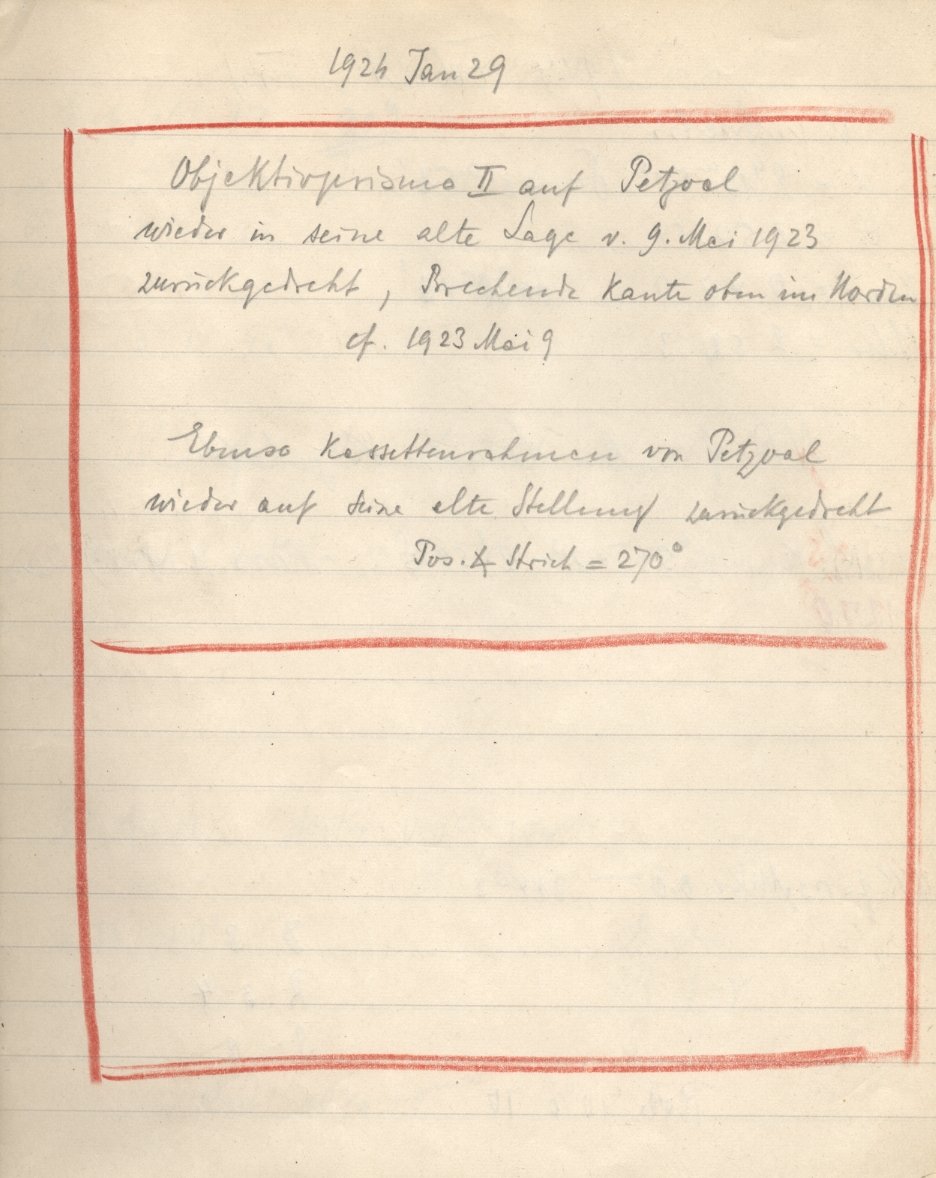 1924 Jan 29
Objektivprisma II auf Petzval
wieder in seine alte Lage v. 9. Mai 1923
zurückgedreht, Brechende Kante oben im Norden
cf. 1923 Mai 9
Ebenso Kassettenrahmen von Petzval
wieder auf seine alte Stellung zurückgedreht
Pos. ∡ Strich = 270°